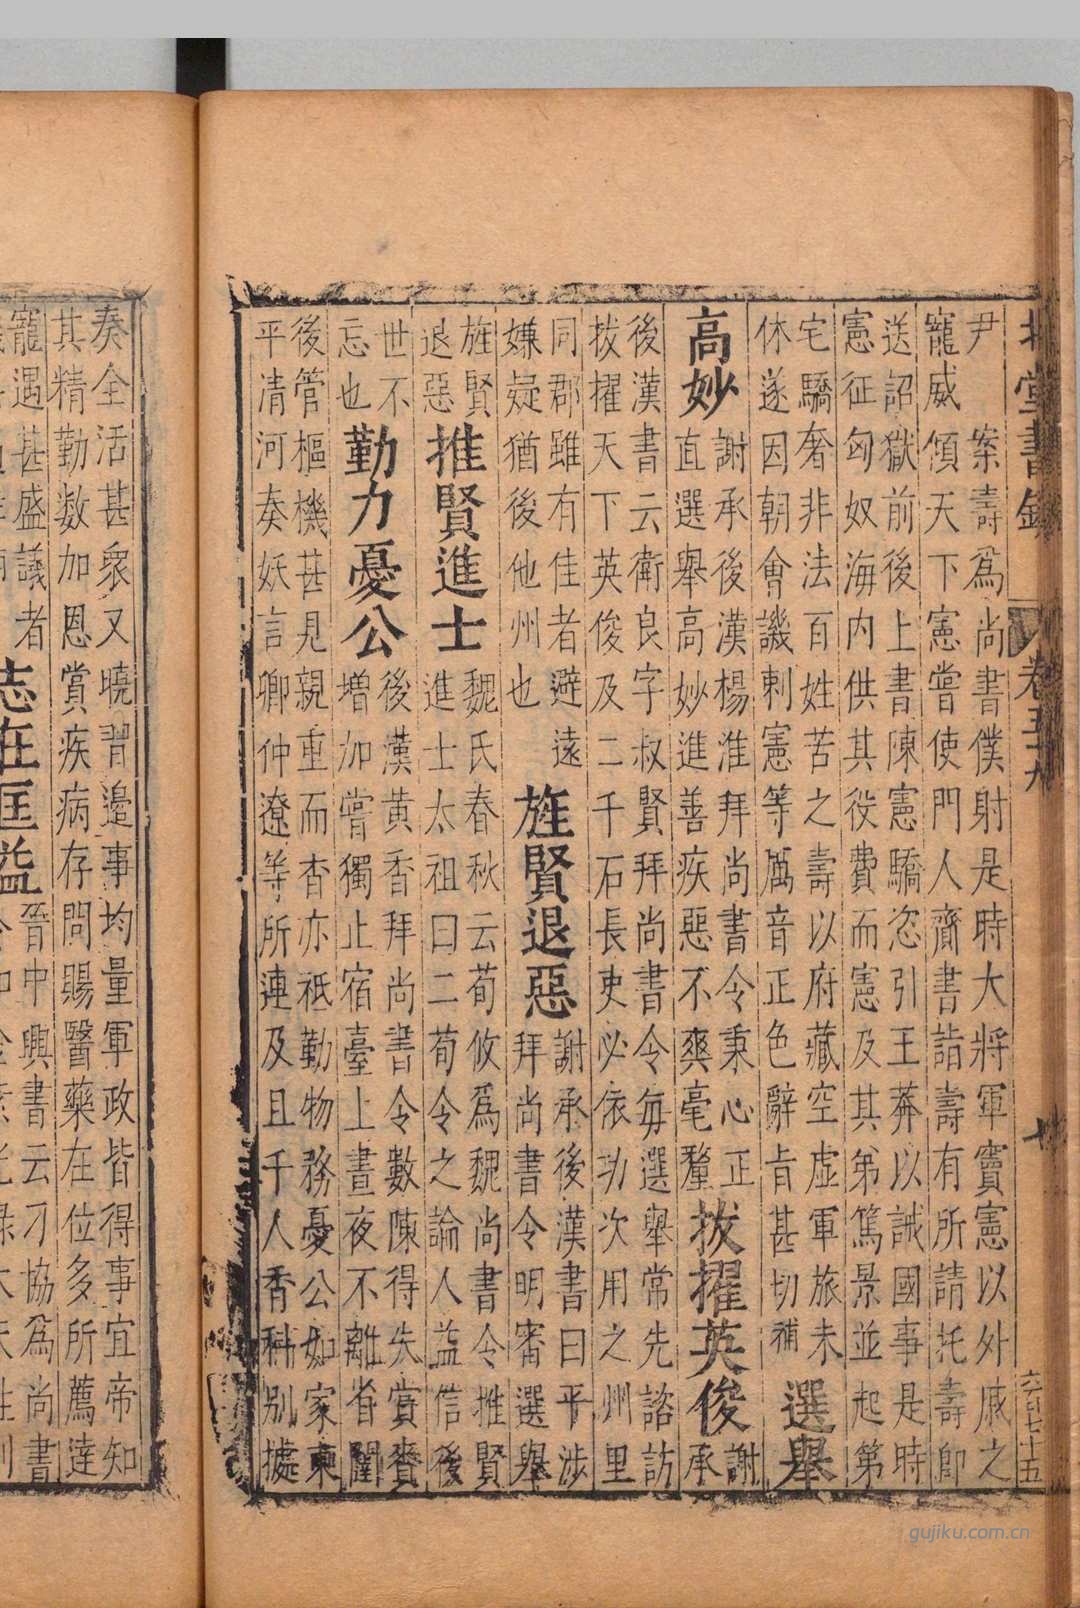 北堂書鈔 卷五十九 七 六百七十五
尹 案壽爲尚書僕射是時大將軍竇憲以外戚之
寵威傾天下憲嘗使門人齎書詣壽有所請托壽即
送詔獄前後上書陳憲驕恣引王莽以誡國事是時
憲征匈奴海内供其役費而憲及其弟篤景並起第
宅驕奢非法百姓苦之壽以府藏空虛軍旅未
休遂因朝會譏刺憲等厲音正色辭旨甚切 補
選舉
高妙
謝承後漢楊淮拜尚書令秉心正
直選舉高妙進善疾惡不爽毫釐
拔擢英俊
謝
承
後漢書云衛良字叔賢拜尚書令每選舉常先諮訪
拔擢天下英俊及二千石長吏必依功次用之州里
同郡雖有佳者避遠
嫌疑猶後他州也
旌賢退惡
謝承後漢書曰平涉
拜尚書令明審選舉
旌賢
退惡
推賢進士
魏氏春秋云荀攸爲魏尚書令推賢
進士太祖曰二荀令之論人益信後
世不
忘也
勤力憂公
後漢黃香拜尚書令數陳得失賞賚
增加嘗獨止宿臺上晝夜不離省闥
後管樞機甚見親重而香亦祇勤物務憂公如家東
平清河奏妖言卿仲遼等所連及且千人香科別據
奏全活甚衆又曉習邊事均量軍政皆得事宜帝知
其精勤數加恩賞疾病存問賜醫藥在位多所薦達
寵遇甚盛議者
志在匡益
晉中興書云刁協爲尚書
gujiku.com.cn